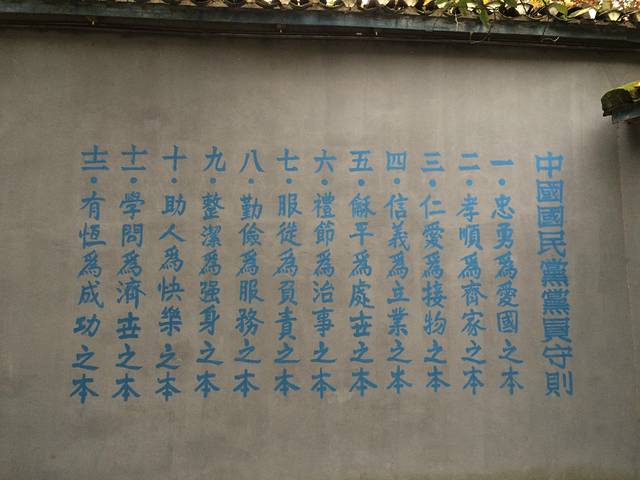 中國國民黨黨員守則
一·忠勇為愛國之本
二·孝順為齊家之本
三·仁愛為接物之本
四·信義為立業之本
五·龢平為處世之本
六·禮節為治事之本
七·服從為負責之本
八·勤儉為服務之本
九·整潔為强身之本
十·助人為快樂之本
十一·學問為濟世之本
十二·有恆為成功之本